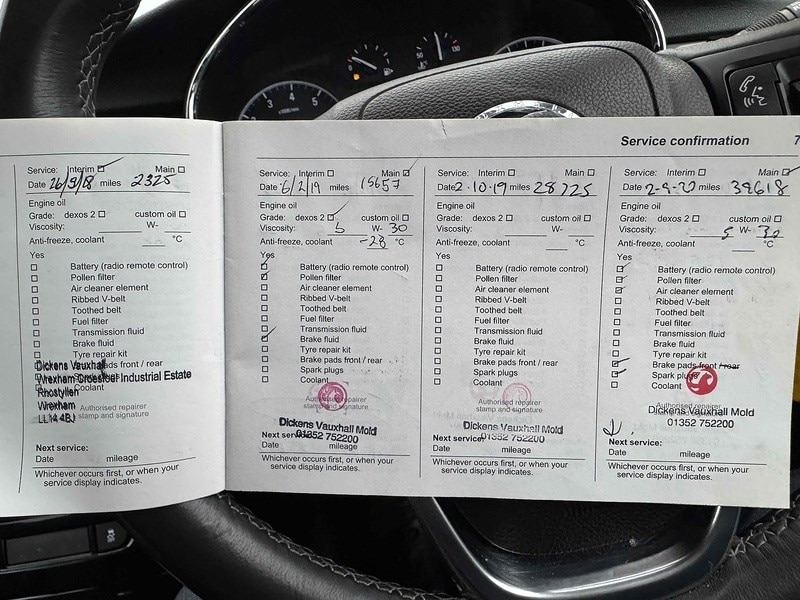 Service confirmation 7
Service: Interim ☐ Main ☐
Date 26/9/18 miles 2325
Engine oil
Grade: dexos 2 ☐ custom oil ☐
Viscosity: W-
Anti-freeze, coolant °C
Yes
☐ Battery (radio remote control)
☐ Pollen filter
☐ Air cleaner element
☐ Ribbed V-belt
☐ Toothed belt
☐ Fuel filter
☐ Transmission fluid
☐ Brake fluid
☐ Tyre repair kit
☐ Brake pads front / rear
Coolant
Dickens Vauxhall
Wrexham Croesfoel Industrial Estate
Rhostyllen
Wrexham
LL14 4BJ
Authorised repairer
stamp and signature
Next service:
Date mileage
Whichever occurs first, or when your
service display indicates.
Service: Interim ☐ Main ☑
Date 6/2/19 miles 15657
Engine oil
Grade: dexos 2 ☑ custom oil ☐
Viscosity: W- 30
Anti-freeze, coolant -28 °C
Yes
☑ Battery (radio remote control)
☑ Pollen filter
☐ Air cleaner element
☐ Ribbed V-belt
☐ Toothed belt
☐ Fuel filter
☐ Transmission fluid
☑ Brake fluid
☐ Tyre repair kit
☐ Brake pads front / rear
☐ Spark plugs
☐ Coolant
Authorised repairer
stamp and signature
Dickens Vauxhall Mold
01352 752200
Next service:
Date mileage
Whichever occurs first, or when your
service display indicates.
Service: Interim ☐ Main ☐
Date 2.10.19 miles 28725
Engine oil
Grade: dexos 2 ☐ custom oil ☐
Viscosity: W-
Anti-freeze, coolant °C
Yes
☐ Battery (radio remote control)
☐ Pollen filter
☐ Air cleaner element
☐ Ribbed V-belt
☐ Toothed belt
☐ Fuel filter
☐ Transmission fluid
☐ Brake fluid
☐ Tyre repair kit
☐ Brake pads front / rear
☐ Spark plugs
☐ Coolant
Authorised repairer
stamp and signature
Dickens Vauxhall Mold
01352 752200
Next service:
Date mileage
Whichever occurs first, or when your
service display indicates.
Service: Interim ☐ Main ☑
Date 2-9-20 miles 39618
Engine oil
Grade: dexos 2 ☐ custom oil ☐
Viscosity: 5 W- 30
Anti-freeze, coolant °C
Yes
☑ Battery (radio remote control)
☑ Pollen filter
☑ Air cleaner element
☐ Ribbed V-belt
☐ Toothed belt
☐ Fuel filter
☐ Transmission fluid
☐ Brake fluid
☐ Tyre repair kit
☑ Brake pads front / rear
☑ Spark plugs
☐ Coolant
Authorised repairer
stamp and signature
Dickens Vauxhall Mold
01352 752200
Next service:
Date mileage
Whichever occurs first, or when your
service display indicates.